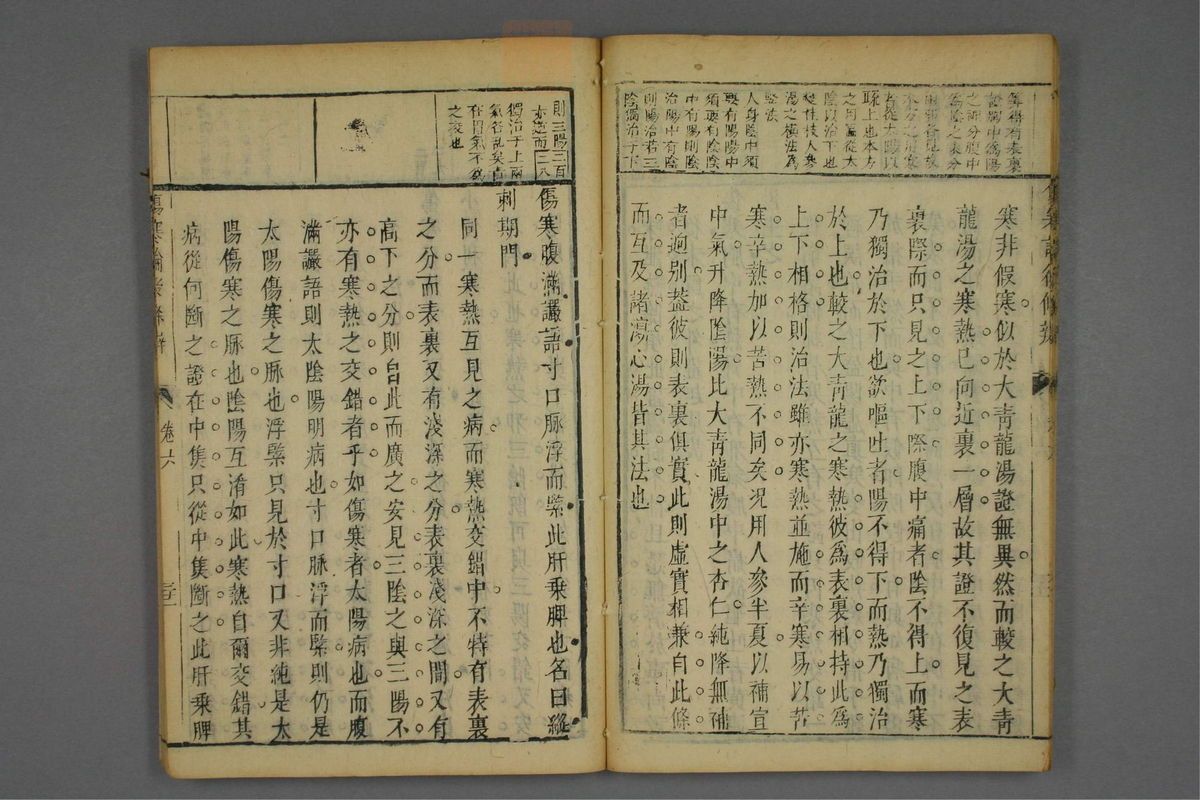 寒非假寒似於大青龍湯證無異然而較之大青
龍湯之寒熱已向近裏一層故其證不復見之表
裏際而只見之上下際腹中痛者陰不得上而寒
乃獨治於下也欲嘔吐者陽不得下而熱乃獨治
於上也較之大青龍之寒熱彼為表裏相持此為
上下相格則治法雖亦寒熱並施而辛寒易以苦
寒辛熱加以苦熱不同矣况用人參半夏以補宣
中氣升降陰陽比大青龍湯中之杏仁純降無補
者逈別蓋彼則表裏俱實此則虛實相兼自此條
而互及諸瀉心湯皆其法也
人身陰中須
要有陽陽中
須要有陰陰
中有陽則陰
治陽中有陰
則陽治若三
陰獨治于下
則三陽
亦逆而
獨治于上兩
在胃氣不為
之交也
傷寒腹滿讝語寸口脉浮而緊此肝乘脾也名曰縱
刺期門
同一寒熱互見之病而寒熱交錯中不特有表裏
之分而表裏又有淺深之分表裏淺深之間又有
高下之分則自此而廣之安見三陰之與三陽不
亦有寒熱之交錯者乎如傷寒者太陽病也而腹
滿讝語則太陰陽明病也寸口脉浮而緊則仍是
太陽傷寒之脉也浮緊只見於寸口又非純是太
陽傷寒之脉也陰陽互淆如此寒熱自爾交錯其
病從何斷之證在中焦只從中焦斷之此肝乘脾
傷寒論後條辨
卷六